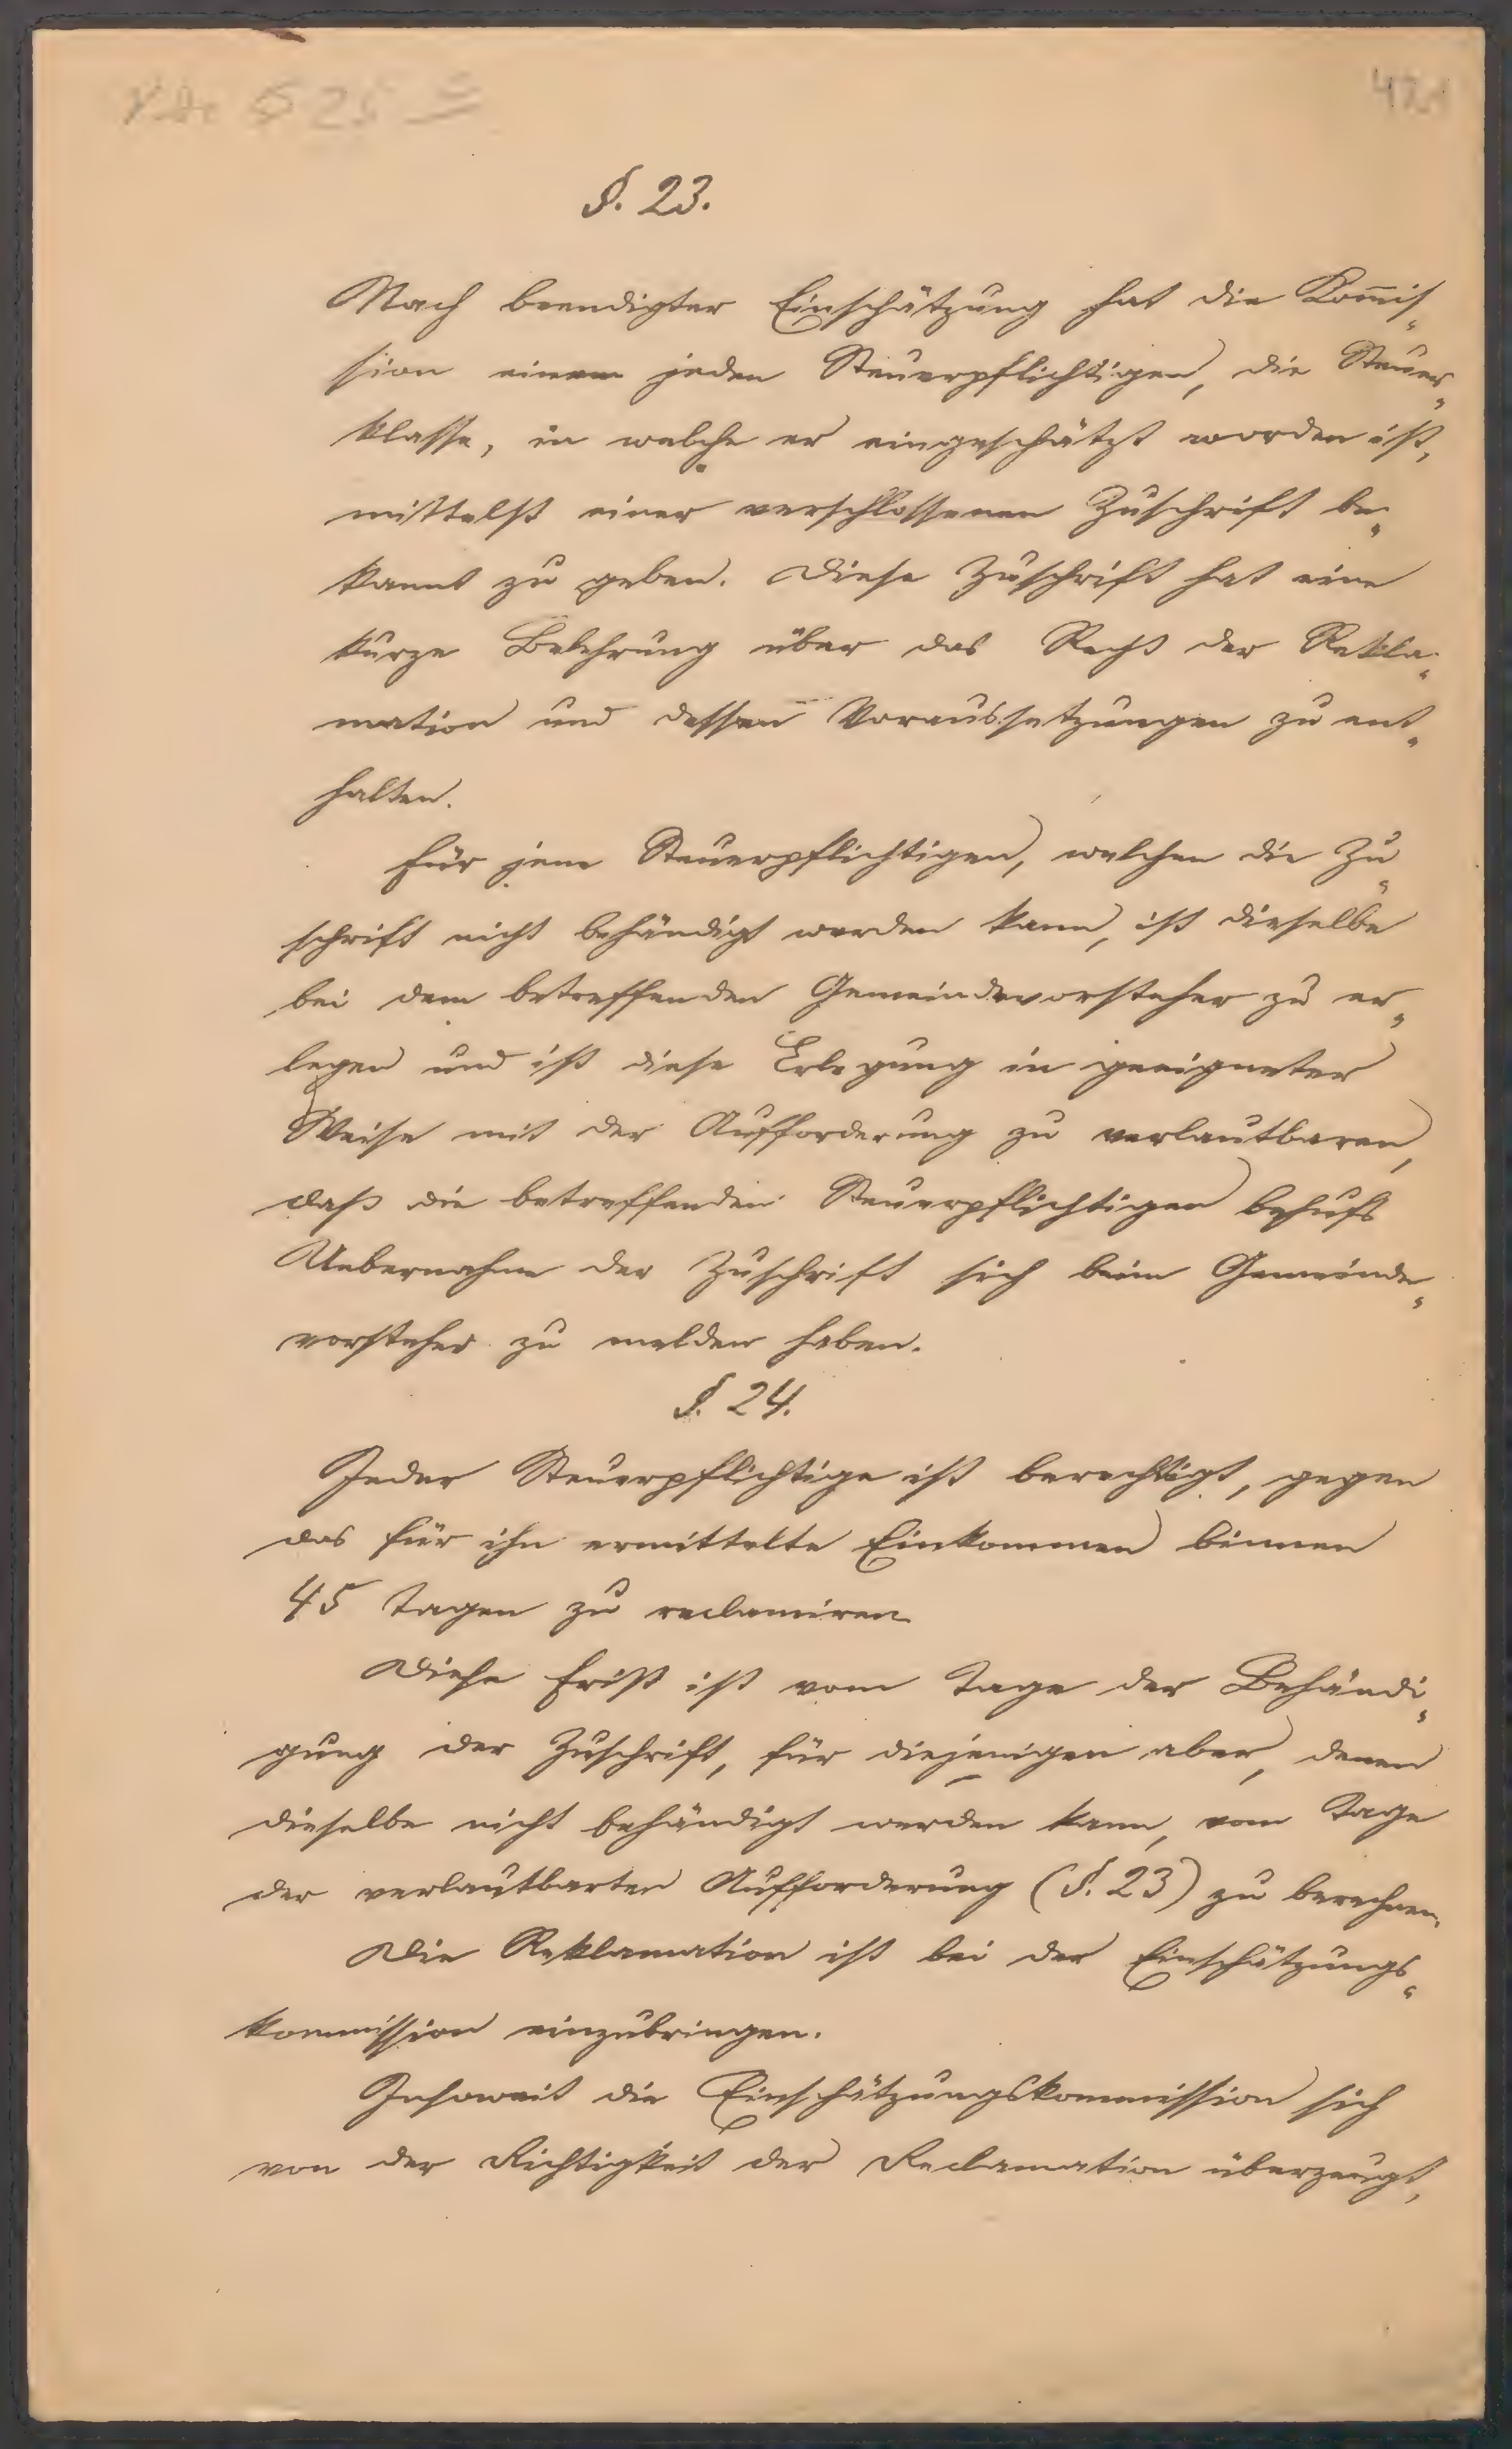 § 25
§. 23.
Nach beendigter Einschätzung hat die Kom̅is„
sion einem jeden Steuerpflichtigen, die Steuer„
klasse, in welche er eingeschätzt worden ist,
mittelst einer verschlossenen Zuschrift be„
kannt zu geben. Diese Zuschrift hat eine
kurze Belehrung über das Recht der Rekla„
mation und dessen Voraussetzungen zu ent„
halten.
Für jene Steuerpflichtigen, welchen die Zu„
schrift nicht behändigt werden kann, ist dieselbe
bei dem betreffenden Gemeindevorsteher zu er„
legen und ist diese Erlegung in geeigneter
Weise mit der Aufforderung zu verlautbaren,
daß die betreffenden Steuerpflichtigen behufs
Uebernahme der Zuschrift sich beim Gemeinde„
vorsteher zu melden haben.
§. 24.
Jeder Steuerpflichtige ist berechtigt, gegen
das für ihn ermittelte Einkommen binnen
45 Tagen zu reclamiren
Diese Frist ist vom Tage der Behändi„
gung der Zuschrift, für diejenigen aber, denen
dieselbe nicht behändigt werden kann, vom Tage
der verlautbarten Aufforderung (§. 23) zu berechnen.
Die Reklamation ist bei der Einschätzungs„
kommission einzubringen.
Insoweit die Einschätzungskommission sich
von der Richtigkeit der Reclamation überzeugt,